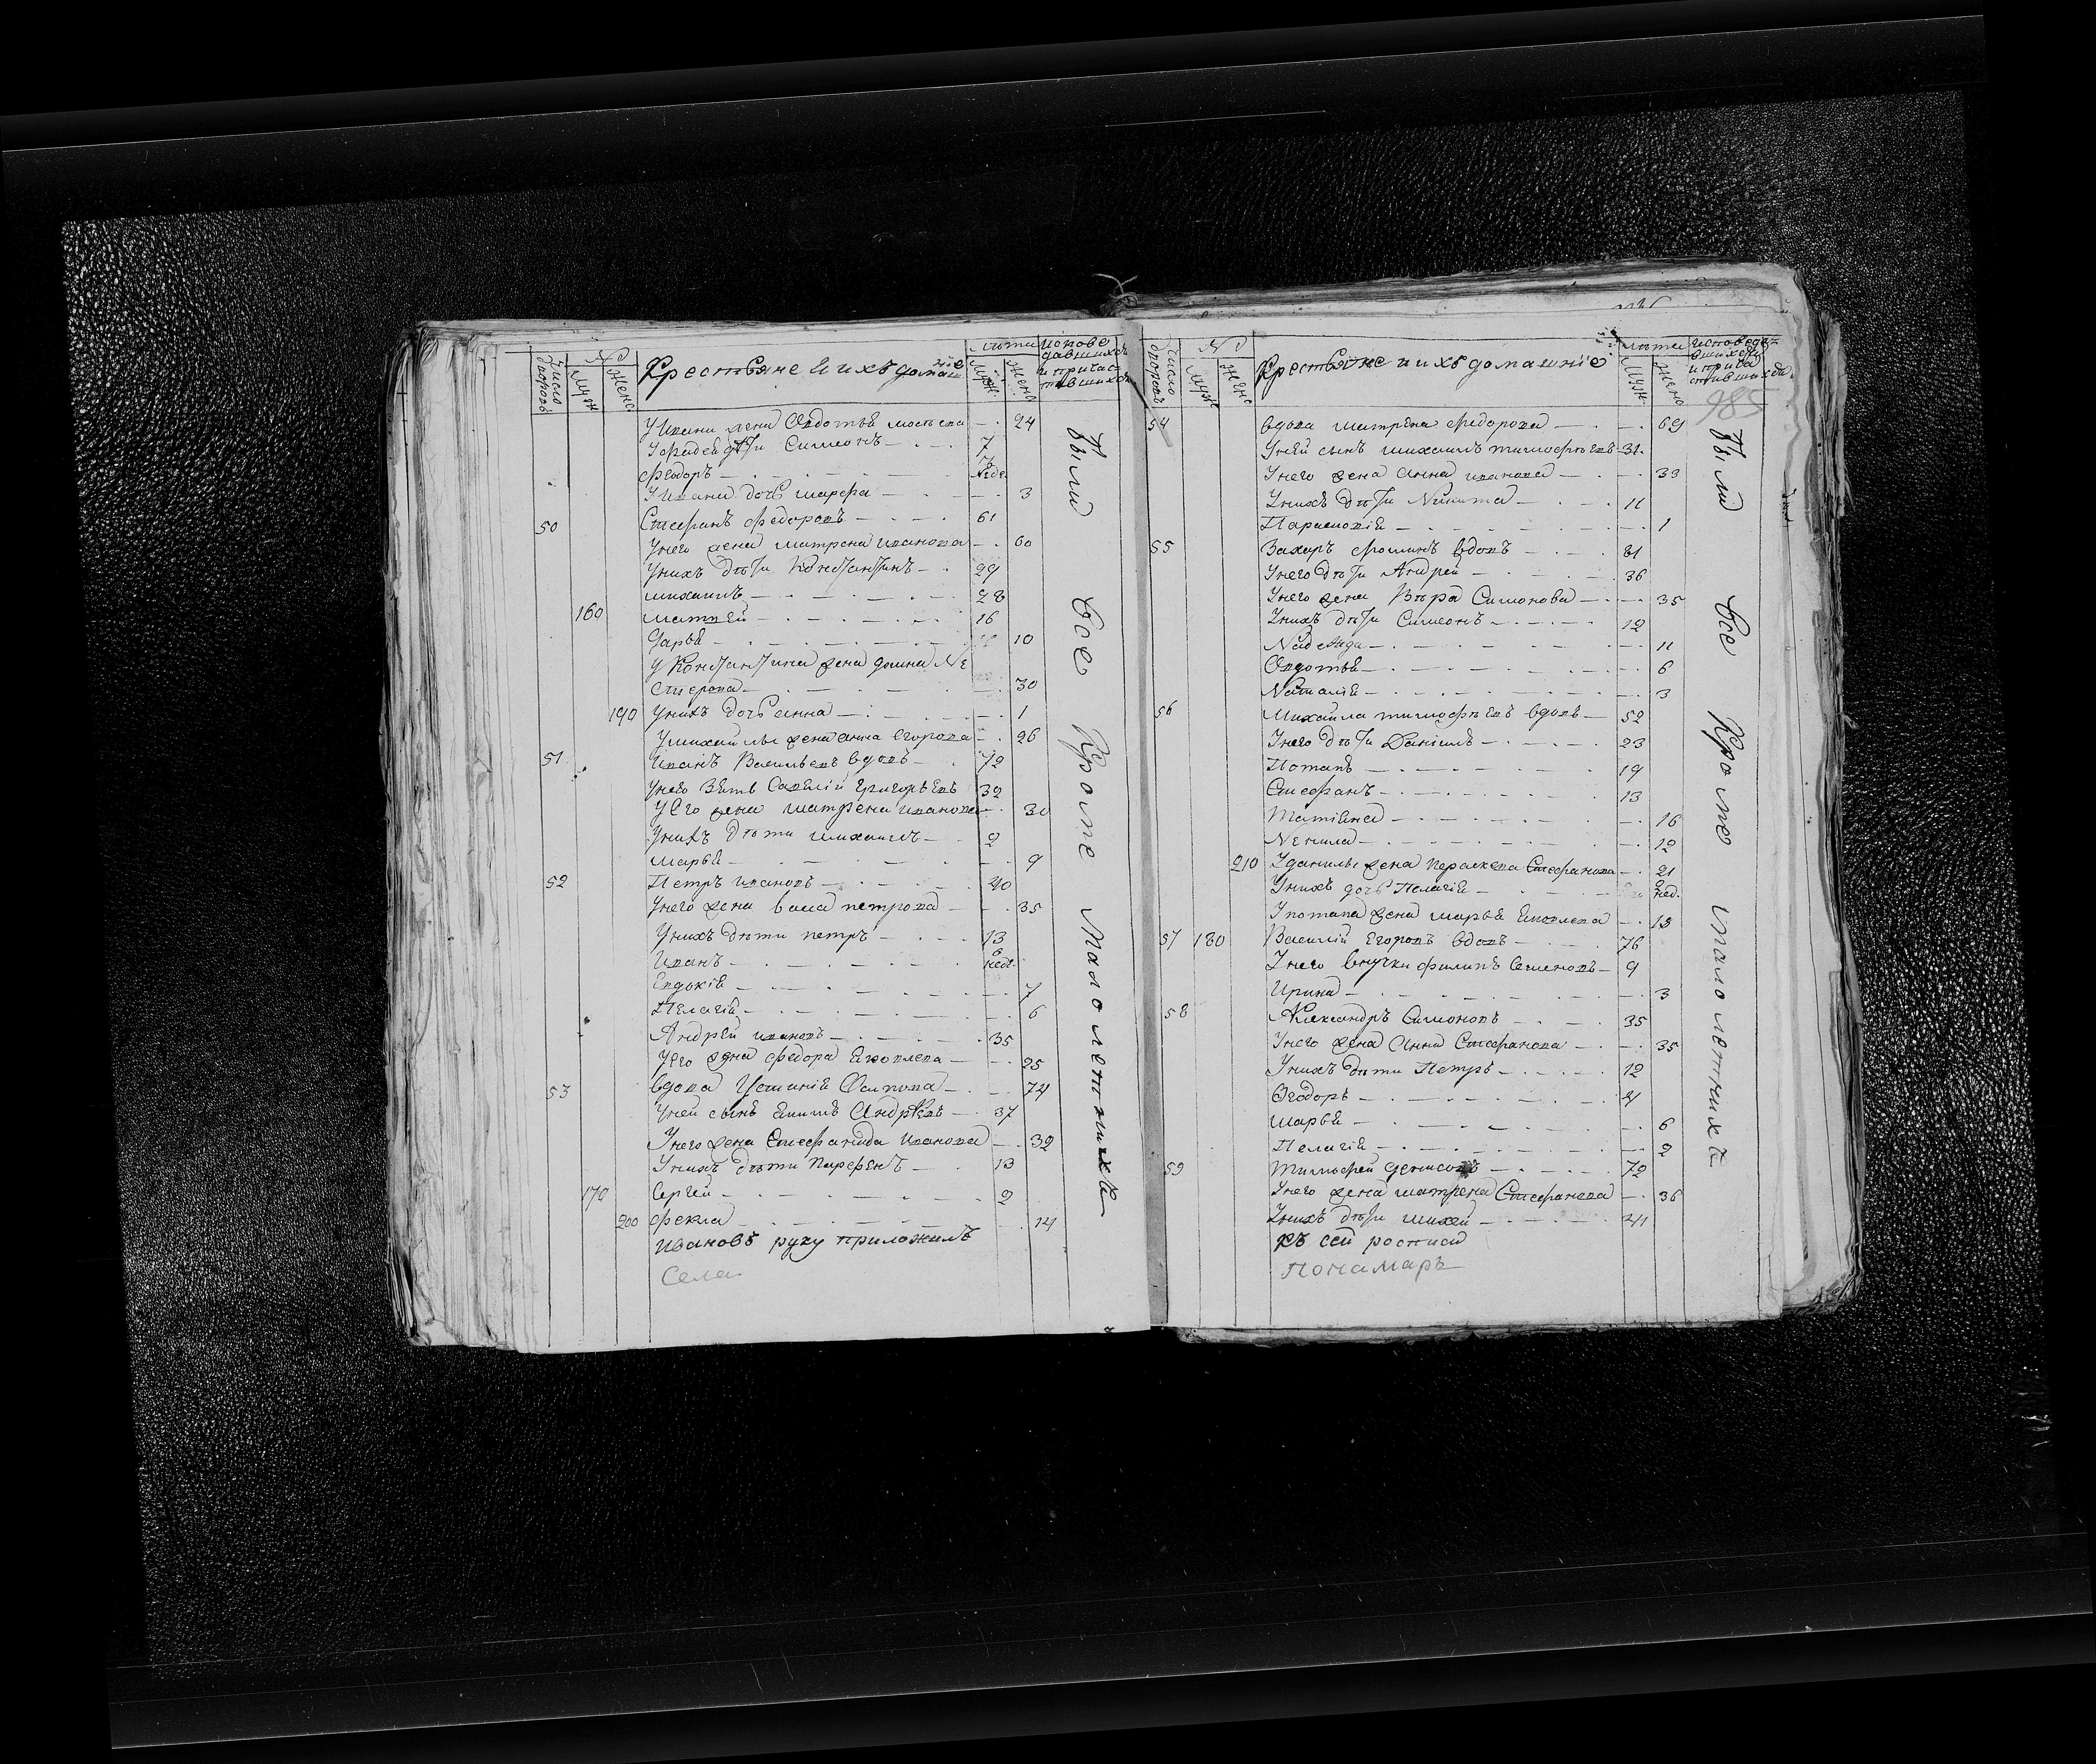 Число дворовъ
№
Муж
Женс
Крестьяне И ихъ домашніе
Лѣта
Муж.
Женс
испове
давшихся
и причас
тившихся
Были всѣ Кроме малолетнихъ
У Ивана жена Авдотья 24
У Фадея дѣти Симеонъ 7
Феодоръ 7 неде.
У Ивана дочь марфа 3
50 Стефанъ Федоровъ 61
У него жена матрена иванова 60
У нихъ дѣти Константинъ 29
михаилъ 28
160 матвей 16
Дарья 10
У Константина жена домна Не
стерова 30
190 У нихъ дочь анна 1
У михайлы жена анна Егорова 26
51 Иванъ Васильевъ вдовъ 72
У него Зять Савелій Григорьевъ 32
У Его жена матрена иванова 30
У нихъ дѣти михаилъ 2
марья 9
52 Петръ ивановъ 40
У него жена васса петрова 35
У нихъ дѣти петръ 13
Иванъ 6 неде.
Евдокія 7
Пелагія 6
Андрей ивановъ 35
У Его жена федора Яковлева 25
53 вдова Устинія Осипова 74
У ней сынъ Якимъ Андреевъ 37
У него жена Стефанида иванова 32
У нихъ дѣти Парфенъ 13
170 Сергей 2
200 фекла 14
Ивановъ руку приложилъ
Села
Число дворовъ
№
Муж
Женс
Крестьяне и ихъ домашніе
лѣта
Муж.
Женс
исповеда
вшихся
и прича
стившихся
985
Были все Кроме малолетнихъ
54 вдова матрена федорова 69
У ней сынъ михаилъ тимофѣевъ 31
У него жена анна иванова 33
У нихъ дѣти Никита 11
Парасковія 1
55 Захаръ фоминъ вдовъ 81
У него дѣти Андрей 36
У него жена Вѣра Симонова 35
У нихъ дѣти Симеонъ 12
Надежда 11
Овдотья 6
Наталія 3
56 Михайла тимофѣевъ вдовъ 52
У него дѣти Даніилъ 23
Потапъ 19
Стефанъ 13
Татіяна 16
Ненила 12
210 У данилы жена параскева Стефанова 21
У нихъ дочь Пелагія 2 нед.
У потапа жена марья Яковлева 18
57 180 Василій Егоровъ вдовъ 76
У него внучки филипъ Семеновъ 9
Ирина 3
58 Александръ Симоновъ 35
У него жена Анна Стефанова 35
У нихъ дѣти Петръ 12
Ѳеодоръ 4
марья 6
Пелагія 2
59 Тимофей денисовъ 72
У него жена матрена Стефанова 36
У нихъ дѣти михей 41
къ сей росписи
Понамаръ